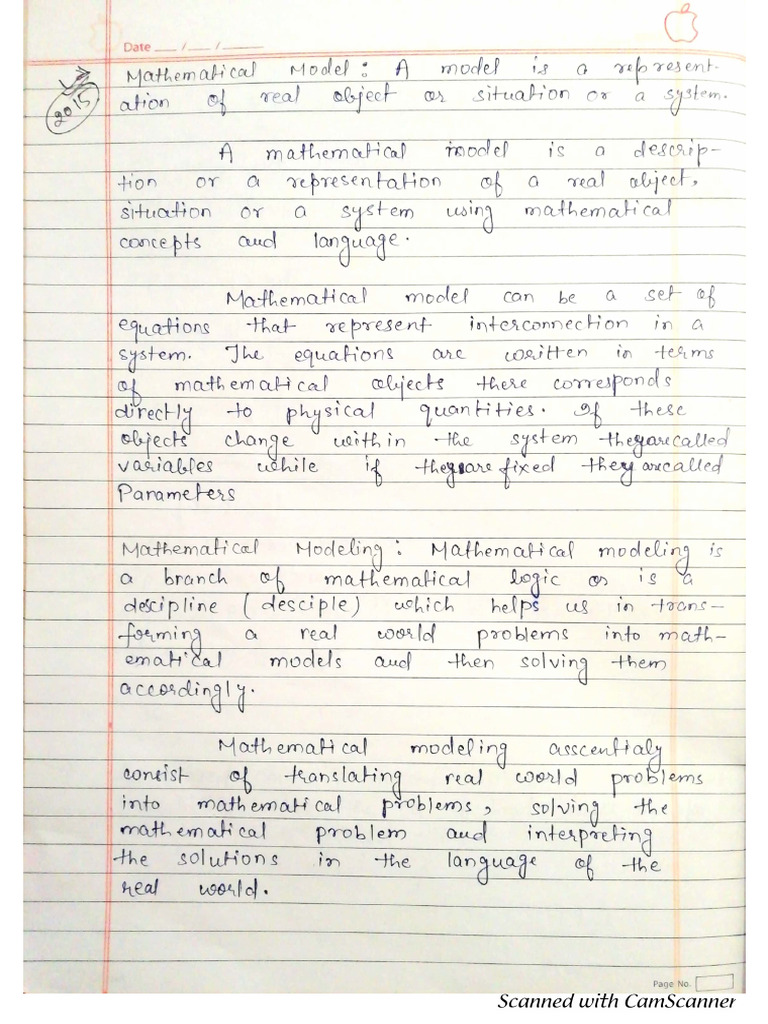 Date ___ / ___ / ___
Mathematical Model : A model is a represent-
2015
ation of real object or situation or a system.
A mathematical model is a descrip-
tion or a representation of a real object,
situation or a system using mathematical
concepts and language.
Mathematical model can be a set of
equations that represent interconnection in a
system. The equations are written in terms
of mathematical objects there corresponds
directly to physical quantities. If these
objects change within the system they are called
variables while if they are fixed they are called
Parameters
Mathematical Modeling : Mathematical modeling is
a branch of mathematical logic or is a
descipline (desciple) which helps us in trans-
forming a real world problems into math-
ematical models and then solving them
accordingly.
Mathematical modeling asscentialy
consist of translating real world problems
into mathematical problems, solving the
mathematical problem and interpreting
the solutions in the language of the
real world.
Page No.
Scanned with CamScanner